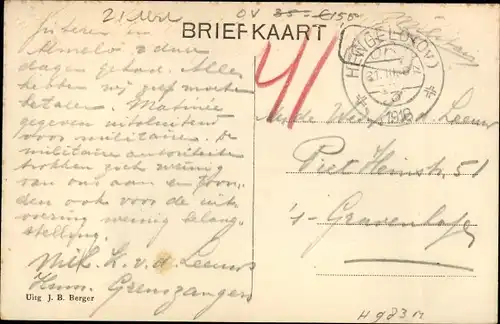 21 Mrt
OV 35- €150
BRIEFKAART
HENGELO (OV)
1918
Almelo 2 dure
dagen gehad. Alles
hebben wij zelf moeten
betalen. Matinée
gegeven uitsluitend
voor militairen. De
militaire autoriteiten
trokken zich weinig
van ons aan en
den ook voor de uit-
voering weinig belang-
stelling.
K. v. d. Leeuw
Grenszangers
Uitg J. B. Berger
41
v. d. Leeuw
Piet Heinstr. 51
's-Gravenhage
H 983 M